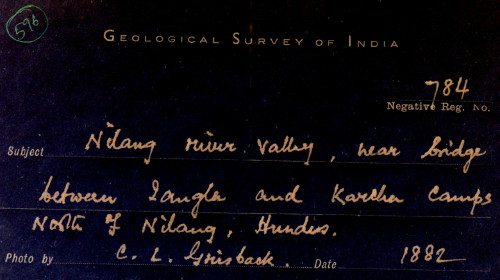 596
GEOLOGICAL SURVEY OF INDIA
784
Negative Reg. No.
Subject Nilang river valley, near bridge
between Jangla and Karcha Camps
North of Nilang, Hundes.
Photo by C. L. Griesback. Date 1882